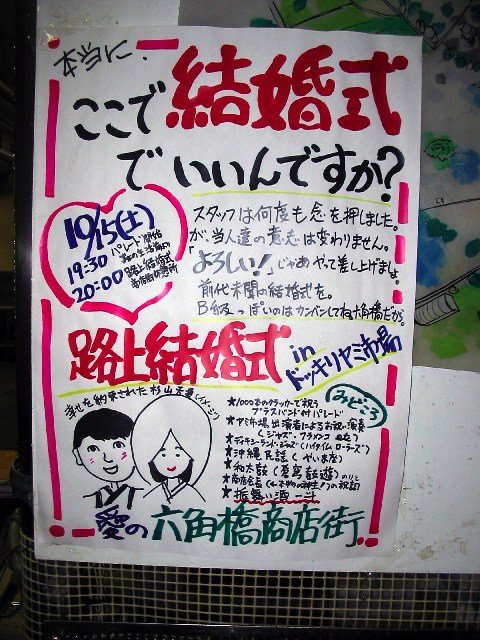 本当に、
ここで結婚式
でいいんですか?
10/15(土)
19:30 パレード開始
20:00 路上結婚式
スタッフは何度も念を押しました。
が、当人達の意志は変わりません。
「よろしい!」じゃあやって差し上げましょ
前代未聞の結婚式を。
B級っぽいのはカンバンしてね六角橋だから。
路上結婚式 in ドッキリヤミ市場
幸せを約束された杉山夫妻(イメージ)
みどころ
★1000本のクラッカーで祝う
ブラスバンド付パレード
★ヤミ市場出演者によるお祝い演奏
(ジャズ・フラメンコ etc)
★ディキシーランド・ジャズ(ハイタイムローラーズ)
★沖縄民謡(やいま座)
★和太鼓
★商店会長
★振舞い酒一斗
愛の六角橋商店街!!